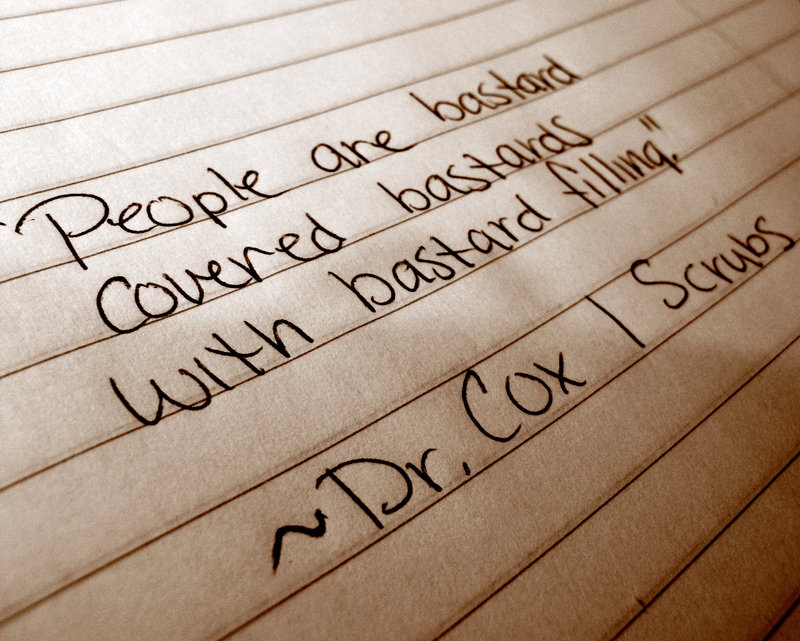 "People are bastard
covered bastards
with bastard filling."
~Dr. Cox | Scrubs